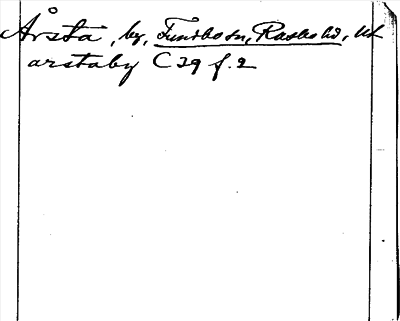 Årsta, by, Funbo sn, Rasbo hd, Upl
arstaby C 29 f. 2